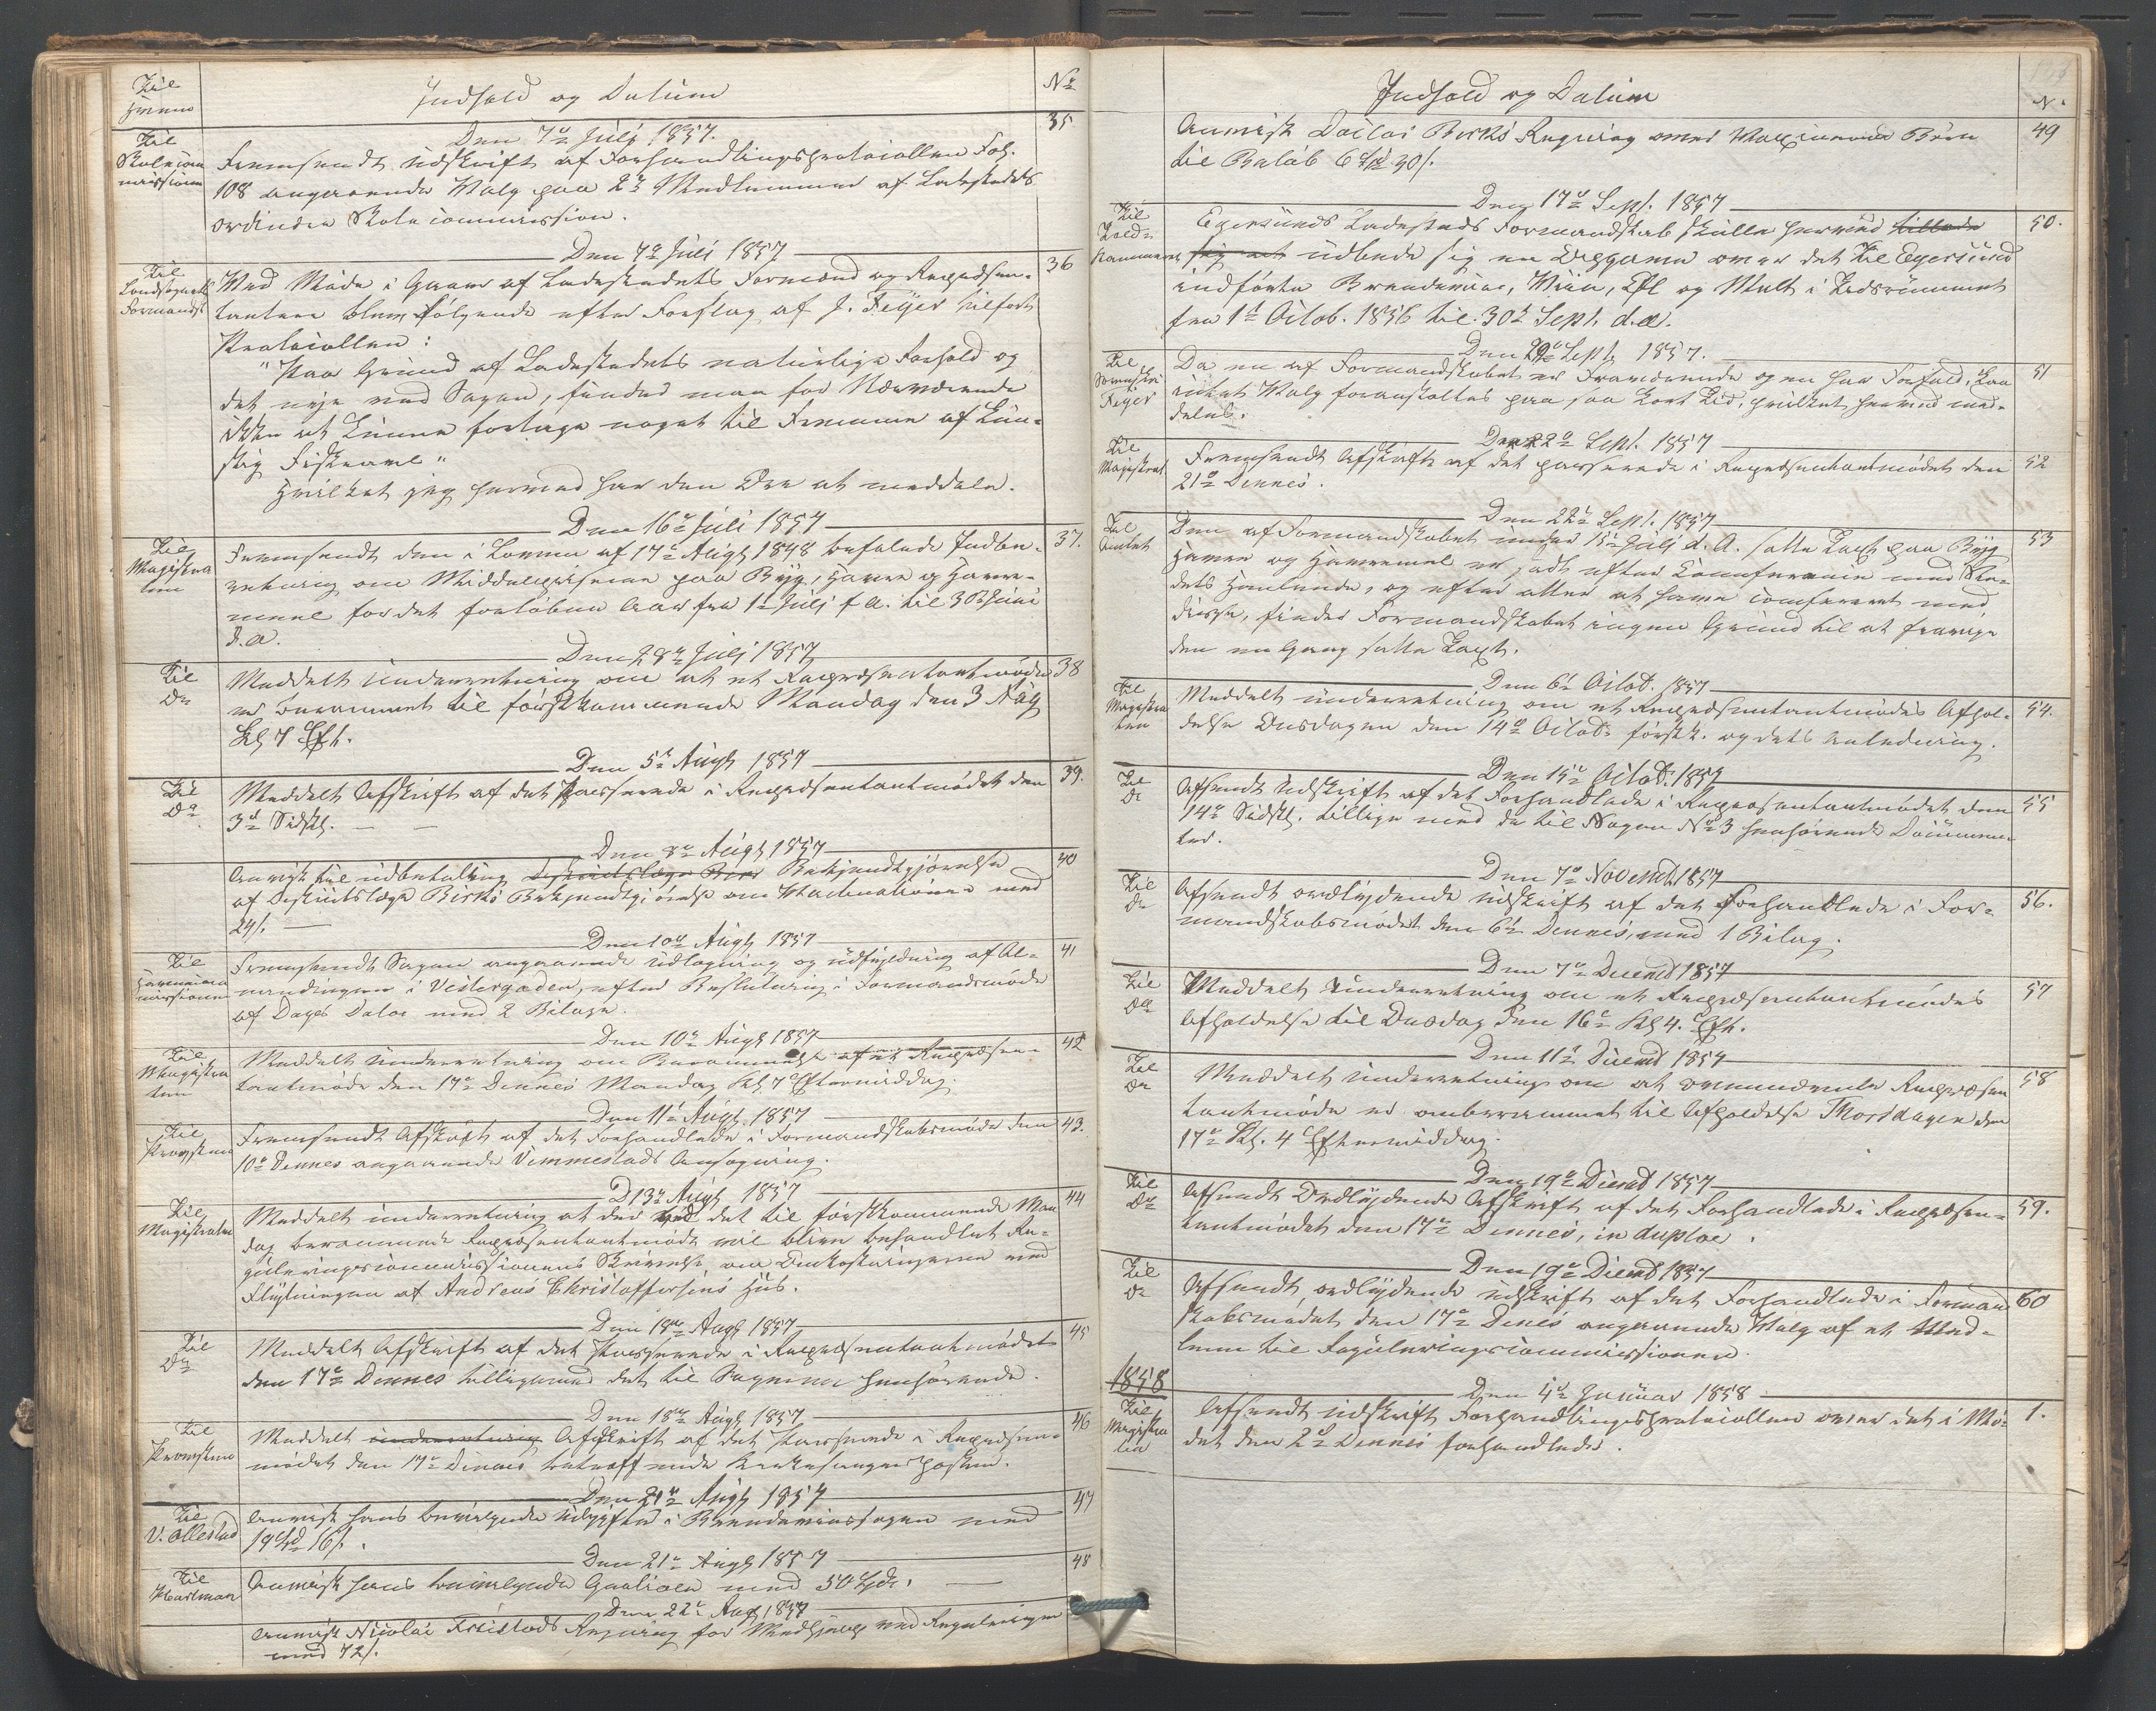 Til
Hvem
Indhold og Datum
No
Den 7de Julij 1857.
35
Til
Skolecom
missionen
Fremsendt Udskrift af Forhandlingsprotocollen Fol.
108 angaaende Valg paa 2de Medlemmer af Ladestedets
ordinære Skolecommission.
Den 7de Juli 1857
36
Til
Landsognets
Formandsk
Ved Møde i Gaar af Ladestedets Formænd og Repræsen-
tantere blev følgende efter Forslag af J. Feyer tilført
Protocollen:
"Paa Grund af Ladestedets naturlige Forhold og
det nye ved Sagen, finder man for Nærværende
ikke at kunne foretage noget til Fremme af kun-
stig Fiskeavl"
Hvilket jeg herved har den Ære at meddele.
Den 16de Juli 1857
37.
Til
Magistra
ten
Fremsendt den i Loven af 17de Augt 1848 befalede Indbe-
retning om Middelpriserne paa Byg, Havre og Havre-
meel for det forløbne Aar fra 1ste Julj f. A. til 30te Juni
d. a.
Den 28de Julj 1857
38
Til
Do
Meddelt Underretning om at et Repræsentantmøde
er berammet til førstkommende Mandag den 3 Aug
Kl 7 Eft.
Den 5te Augt 1857
39.
Til
Do
Meddelt Afskrift af det Passerede i Repræsentantmødet den
3de Sidstl.
Den 8de Augt 1857
40
Anvist til Udbetaling Districtslæge Bir Bekjendtgjørelse
af Districtslæge Birks Bekjendtgjørelse om Vaccinationen med
24/.
Den 10de Augt 1857
41
Til
Havnecom
missionen
Fremsendt Sagen angaaende Udlægning og Udfyldning af Al-
mendingen i Vestergaden, efter Beslutning i Formandsmøde
af Dags Dato med 2 Bilage.
Den 10de Augt 1857
42
Til
Magistra
ten
Meddelt Underretning om Berammelse af et Repræsen-
tantmøde den 17de Dennes Mandag Kl 7 Eftermiddag.
Den 11te Augt. 1857
43.
Til
Provsten
Fremsendt Afskrift af det Forhandlede i Formandskabsmøde den
10de Dennes angaaende Vemmestads Ansøgning.
D 13de Augt 1857
44
Til
Magistraten
Meddelt Underretning at der ved det til førstkommende Man
dag berammede Repræsentantmøde vil blive behandlet Re-
guleringscommissionens Skrivelse om Omkostningerne ved
Flytningen af Andreas Christoffersens Hus.
Den 18de Augt 1857
45
Til
Do
Meddelt Afskrift af det Passerede i Repræsentantmødet
den 17de Dennes tilligemed det til Sagerne henhørende.
Den 18de Augt 1857
46
Til
Provsten
Meddelt Underretning Afskrift af det Passerede i Repræsen-
mødet den 17de Dennes betreffende Kirkesangerposten.
Den 21de Augt 1857
47
Til
V. Ollestad
Anvist hans bevilgede Udgifter i Brændeviinssagen med
19 Spd 16/.
Den 21de Augt 1857
48
Til
Hartman
Anvist hans bevilgede Gratiale med 50 Spd.
Den 22de Augt 1857
Anvist Nicolai Friestads Regning for Medhjelp ved Reguleringen
med 72/.
Indhold og Datum
N.
Anvist Doctor Birks Regning over Vaccinerede Børn
49
til Beløb 6 Spd 30/.
Den 17de Sept. 1857
50.
Til
Told-
kammeret
Egersunds Ladesteds Formandskab skulle herved tillade
sig at udbede sig en Opgave over det til Egersund
indførte Brændeviin, Viin, Øl og Malt i Tidsrummet
fra 1ste Octob. 1856 til 30te Sept. d. a.
Den 29de Sept 1857.
51
Til
Feyer
Da en af Formandskabet er Fraværende og en har Forfald, kan
intet Valg foranstaltes paa saa kort Tid, hvilket herved med-
deles.
Den 22de Sept. 1857
52
Til
Magistrat
Fremsendt Afskrift af det passerede i Repræsentantmødet den
21de Dennes.
Den 22de Sept. 1857
53
Til
Amtet
Den af Formandskabet under 15de Julj d. A. satte Taxt paa Byg
Havre og Havremel er sadt efter Conference med Ste-
dets Handlende, og efter atter at have confereret med
disse, finder Formandskabet ingen Grund til at fravige
den en Gang satte Taxt.
Den 6te Octob. 1857
54.
Til
Magistra
ten
Meddelt Underretning om et Repræsentantmødes Afhol-
delse Onsdagen den 14de Octob. førstk. og dets Anledning.
Den 15de Octob. 1857
55
Til
Do
Afsendt Udskrift af det Forhandlede i Repræsentantmødet den
14de Sidstl. tillige med de til Sagen No 3 henhørende Documen-
ter.
Den 7de Novemb. 1857
56.
Til
Do
Afsendt ordlydende Udskrift af det Forhandlede i For-
mandskabsmødet den 6te Dennes, med 1 Bilag.
Den 7de Decemb 1857
57
Til
Do
Meddelt Underretning om et Repræsentantmødes
Afholdelse til Onsdag den 16de Kl 4. Eft.
Den 11te Decemb 1857
58
Til
Do
Meddelt Underretning om at ovennævnte Repræsen
tantmøde er omberammet til Afholdelse Thorsdagen den
17de Kl. 4 Eftermiddag.
Den 19de Decemb 1857
59.
Til
Do
Afsendt Ordlydende Afskrift af det Forhandlede i Repræsen-
tantmødet den 17de Dennes, in duploe.
Den 19de Decemb 1857
60
Til
Do
Afsendt ordlydende Udskrift af det Forhandlede i Formand
skabsmødet den 17de Denes angaaende Valg af et Med-
lem til Reguleringscommissionen.
1858
Den 4de Januar 1858
1.
Til
Magistra
ten
Afsendt Udskrift Forhandlingsprotocollen over det i Mø-
det den 2de Dennes forhandlede.